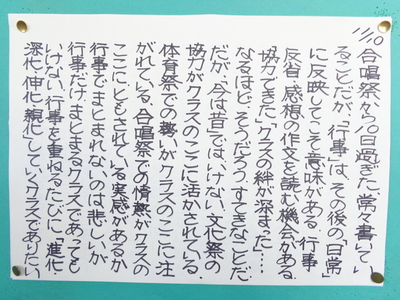 11/10
合唱祭から10日過ぎた。常々書いてい
ることだが、「行事」は、その後の「日常」
に反映してこそ意味がある。行事
反省・感想の作文を読む機会がある。
「協力できた」「クラスの絆が深まった……
なるほど、そうだろう。すてきなことだ。
だが、「今は昔」ではいけない。文化祭の
協力がクラスのここに活かされている、
体育祭での勢いがクラスのここに注
がれている、合唱祭での情熱がクラスの
ここにともされている実感があるか。
行事でまとまれないのは悲しいが
行事だけまとまるクラスであっても
いけない。行事を重ねるたびに、「進化
深化、伸化、親化」していくクラスでありたい